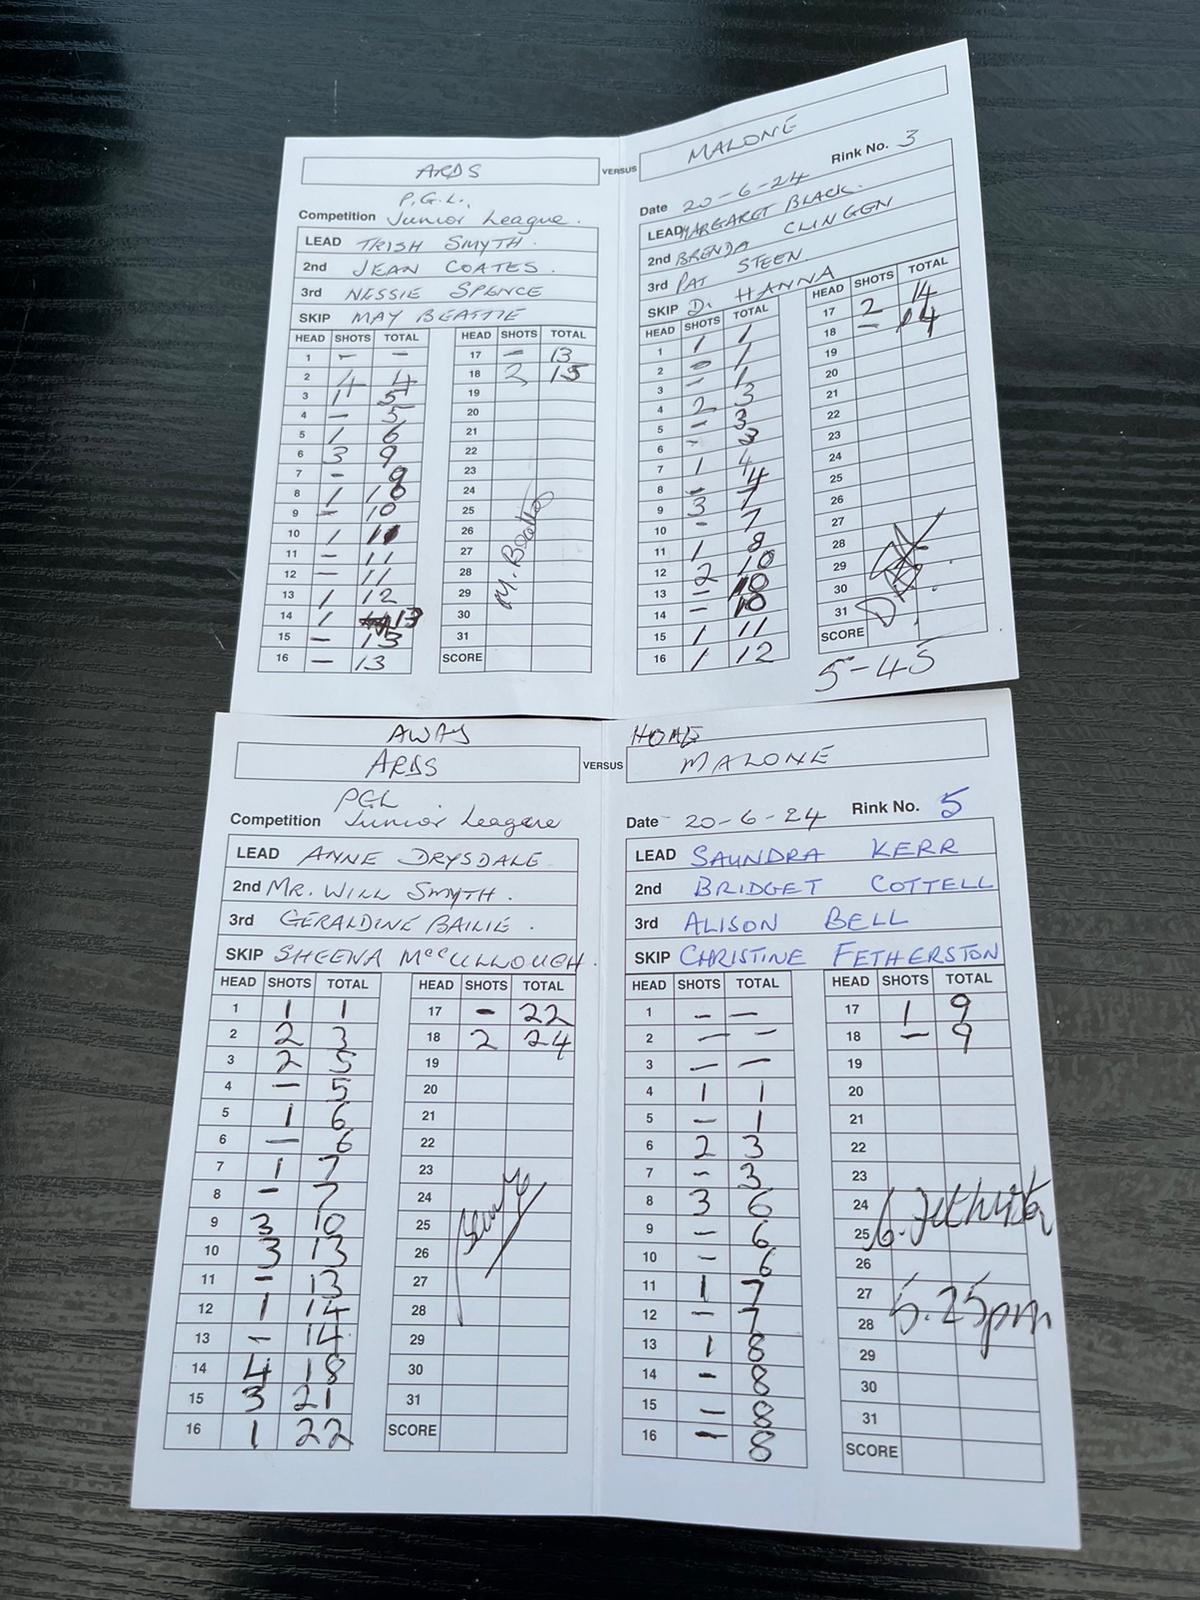 ARDS VERSUS MALONE
P.G.L. Rink No. 3
Competition Junior League. Date 20-6-24
LEAD TRISH SMYTH. LEAD MARGARET BLACK.
2nd JEAN COATES. 2nd BRENDA CLINGEN
3rd NESSIE SPENCE 3rd PAT STEEN
SKIP MAY BEATTIE SKIP D. HANNA
HEAD SHOTS TOTAL HEAD SHOTS TOTAL HEAD SHOTS TOTAL HEAD SHOTS TOTAL
1 - - 17 - 13 1 1 1 17 2 14
2 4 4 18 2 15 2 - 1 18 - 14
3 1 5 19 3 - 1 19
4 - 5 20 4 2 3 20
5 1 6 21 5 - 3 21
6 3 9 22 6 - 3 22
7 - 9 23 7 1 4 23
8 1 10 24 8 - 4 24
9 - 10 25 9 3 7 25
10 1 11 26 10 - 7 26
11 - 11 27 11 1 8 27
12 - 11 28 12 2 10 28
13 1 12 29 13 - 10 29
14 1 13 30 14 - 10 30
15 - 13 31 15 1 11 31
16 - 13 SCORE 16 1 12 SCORE
M. Beattie
5-45
AWAY HOME
ARDS VERSUS MALONE
PGL
Competition Junior League Date 20-6-24 Rink No. 5
LEAD ANNE DRYSDALE LEAD SAUNDRA KERR
2nd MR. WILL SMYTH. 2nd BRIDGET COTTELL
3rd GERALDINE BAILIE. 3rd ALISON BELL
SKIP SHEENA McCULLOUGH. SKIP CHRISTINE FETHERSTON
HEAD SHOTS TOTAL HEAD SHOTS TOTAL HEAD SHOTS TOTAL HEAD SHOTS TOTAL
1 1 1 17 - 22 1 - - 17 1 9
2 2 3 18 2 24 2 - - 18 - 9
3 2 5 19 3 - - 19
4 - 5 20 4 1 1 20
5 1 6 21 5 - 1 21
6 - 6 22 6 2 3 22
7 1 7 23 7 - 3 23
8 - 7 24 8 3 6 24
9 3 10 25 9 - 6 25
10 3 13 26 10 - 6 26
11 - 13 27 11 1 7 27
12 1 14 28 12 - 7 28
13 - 14 29 13 1 8 29
14 4 18 30 14 - 8 30
15 3 21 31 15 - 8 31
16 1 22 SCORE 16 - 8 SCORE
5.25pm